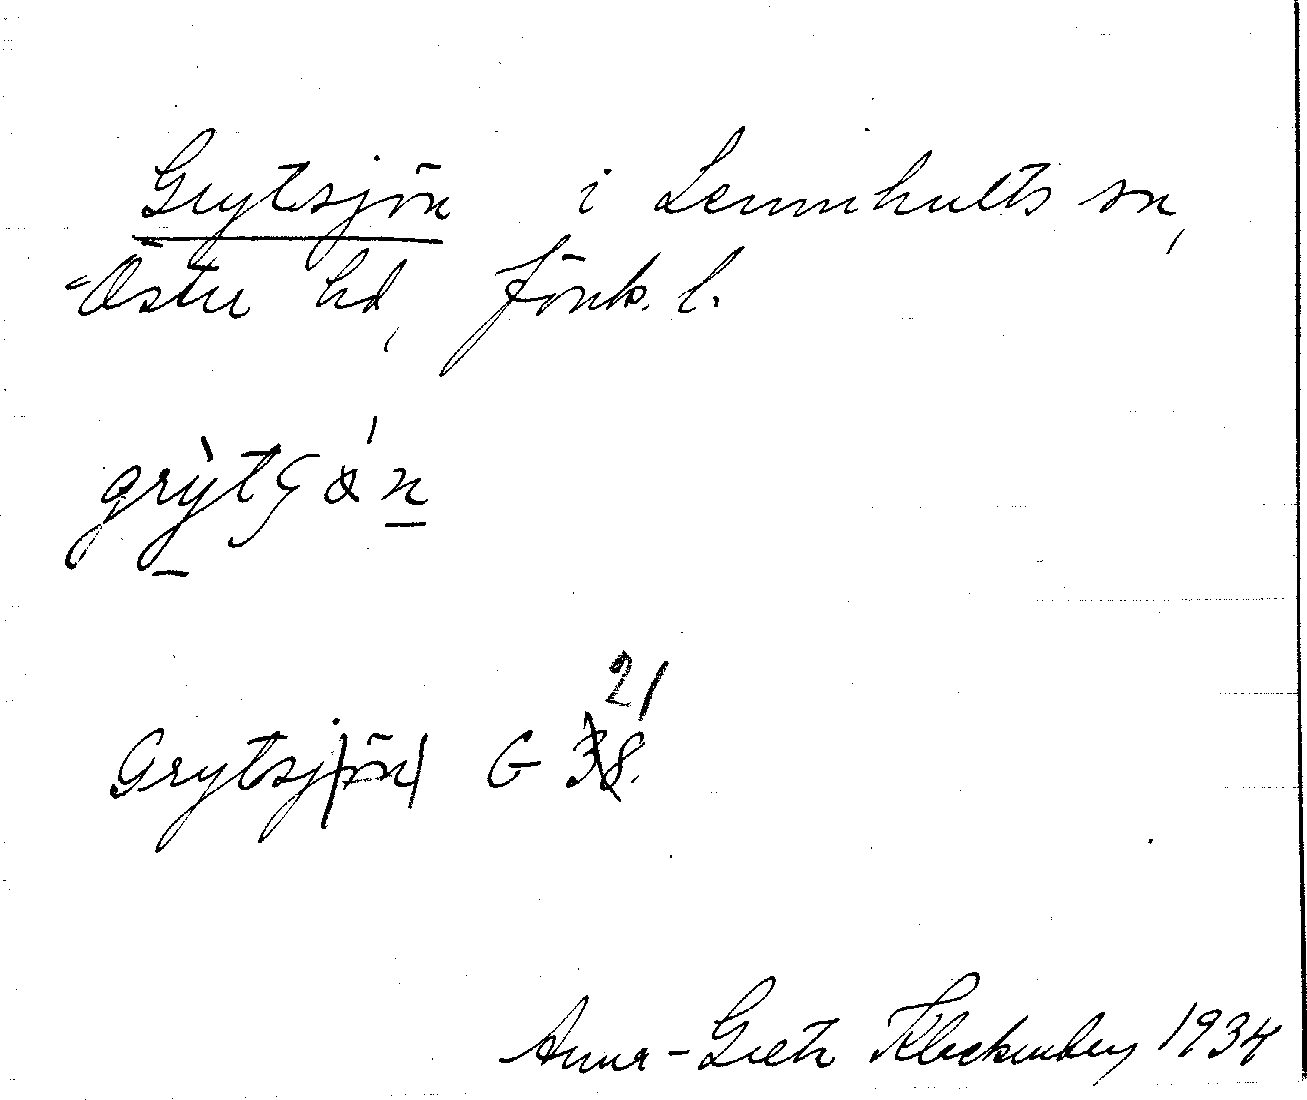 Grytsjön i Lemnhults sn,
Östra hd, Jönk. l.
grỳtʃɵ́n
Grytsj|ön| G 38. 21
Anna-Greta Klockenberg 1934